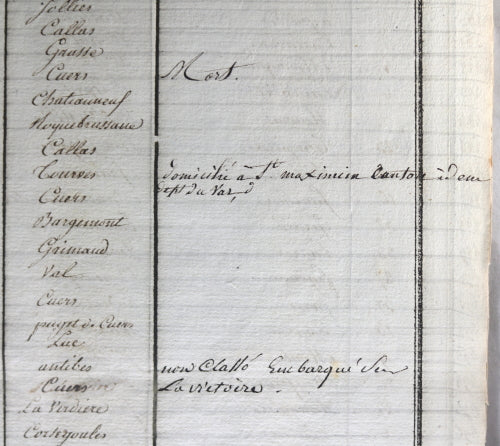 Sollies
Callas
Grasse
Cuers Mort.
Chateauneuf
Roquebrussane
Callas
Tourves domicilié à St. maximin Canton idem
Cuers dpt du Var,
Bargemont
Grimaud
Val
Cuers
puget de Cuers
Luc
antibes non Classé Embarqué Sur
Cuers La victoire.
La Verdiere
Coursegoules